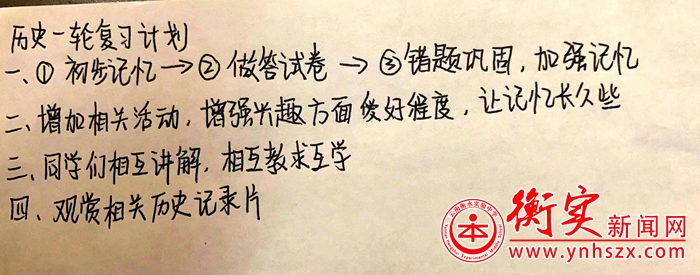 历史一轮复习计划
一、① 初步记忆 → ② 做答试卷 → ③ 错题巩固，加强记忆
二、增加相关活动，增强兴趣方面爱好程度，让记忆长久些
三、同学们相互讲解，相互教求互学
四、观赏相关历史记录片
衡实新闻网
www.ynhszx.com